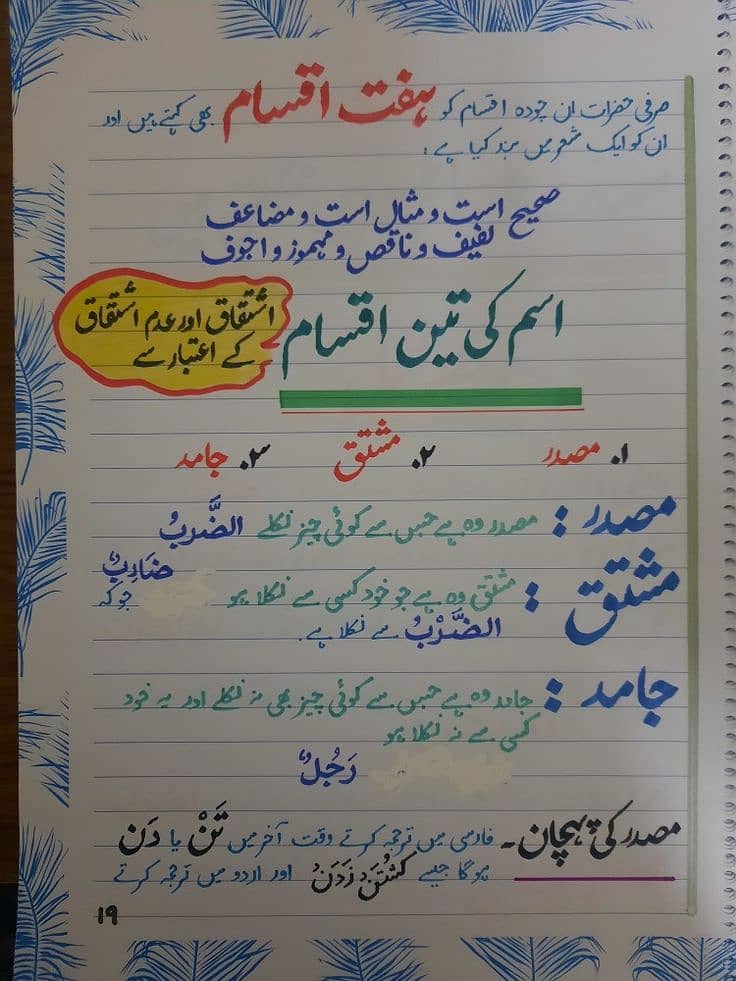 صرفی حضرات ان چودہ اقسام کو ہفت اقسام بھی کہتے ہیں اور
ان کو ایک شعر میں بند کیا ہے:
صحیح است و مثال است و مضاعف
لفیف و ناقص و مہموز و اجوف
اسم کی تین اقسام
اشتقاق اور عدم اشتقاق
کے اعتبار سے
۱. مصدر ۲. مشتق ۳. جامد
مصدر : مصدر وہ ہے جس سے کوئی چیز نکلے الضَّربُ
مشتق : مشتق وہ ہے جو خود کسی سے نکلا ہو ضَارِبٌ جو کہ
الضَّرْبُ سے نکلا ہے.
جامد : جامد وہ ہے جس سے کوئی چیز بھی نہ نکلے اور نہ خود
کسی سے نہ نکلا ہو
رَجُلٌ
مصدر کی پہچان۔ فارسی میں ترجمہ کرتے وقت آخر میں تَنْ یا دَن
ہوگا جیسے کُشْتَنْ زَدَنْ اور اردو میں ترجمہ کرتے
۱۹